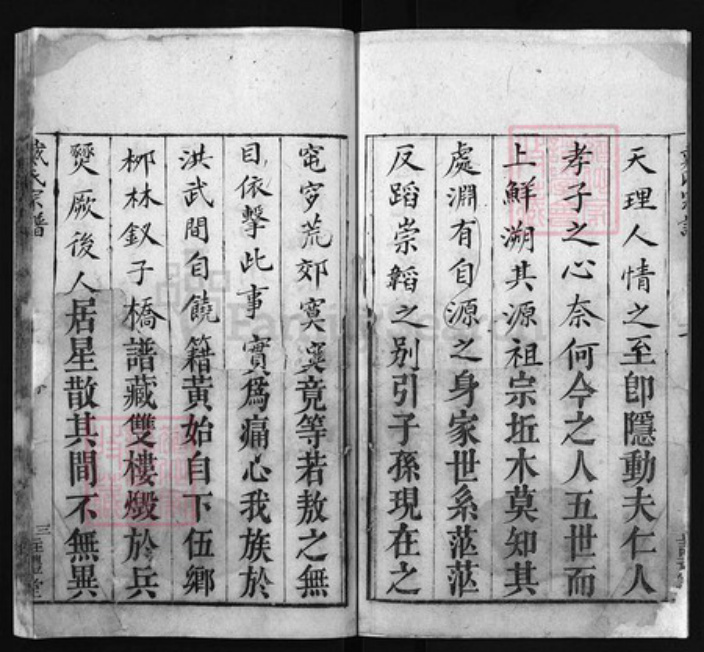 天理人情之至即隱動夫仁人
孝子之心奈何今之人五世而
上鮮溯其源祖宗坵木莫知其
處淵有自源之身家世系茫茫
反蹈崇韜之别引子孫現在之
窀穸荒郊寞寞竟等若敖之無
目依擊此事實爲痛心我族於
洪武間自饒籍黄始自下伍鄉
柳林釵子橋譜藏雙樓燬於兵
燹厥後人居星散其間不無異
戴氏宗譜
三